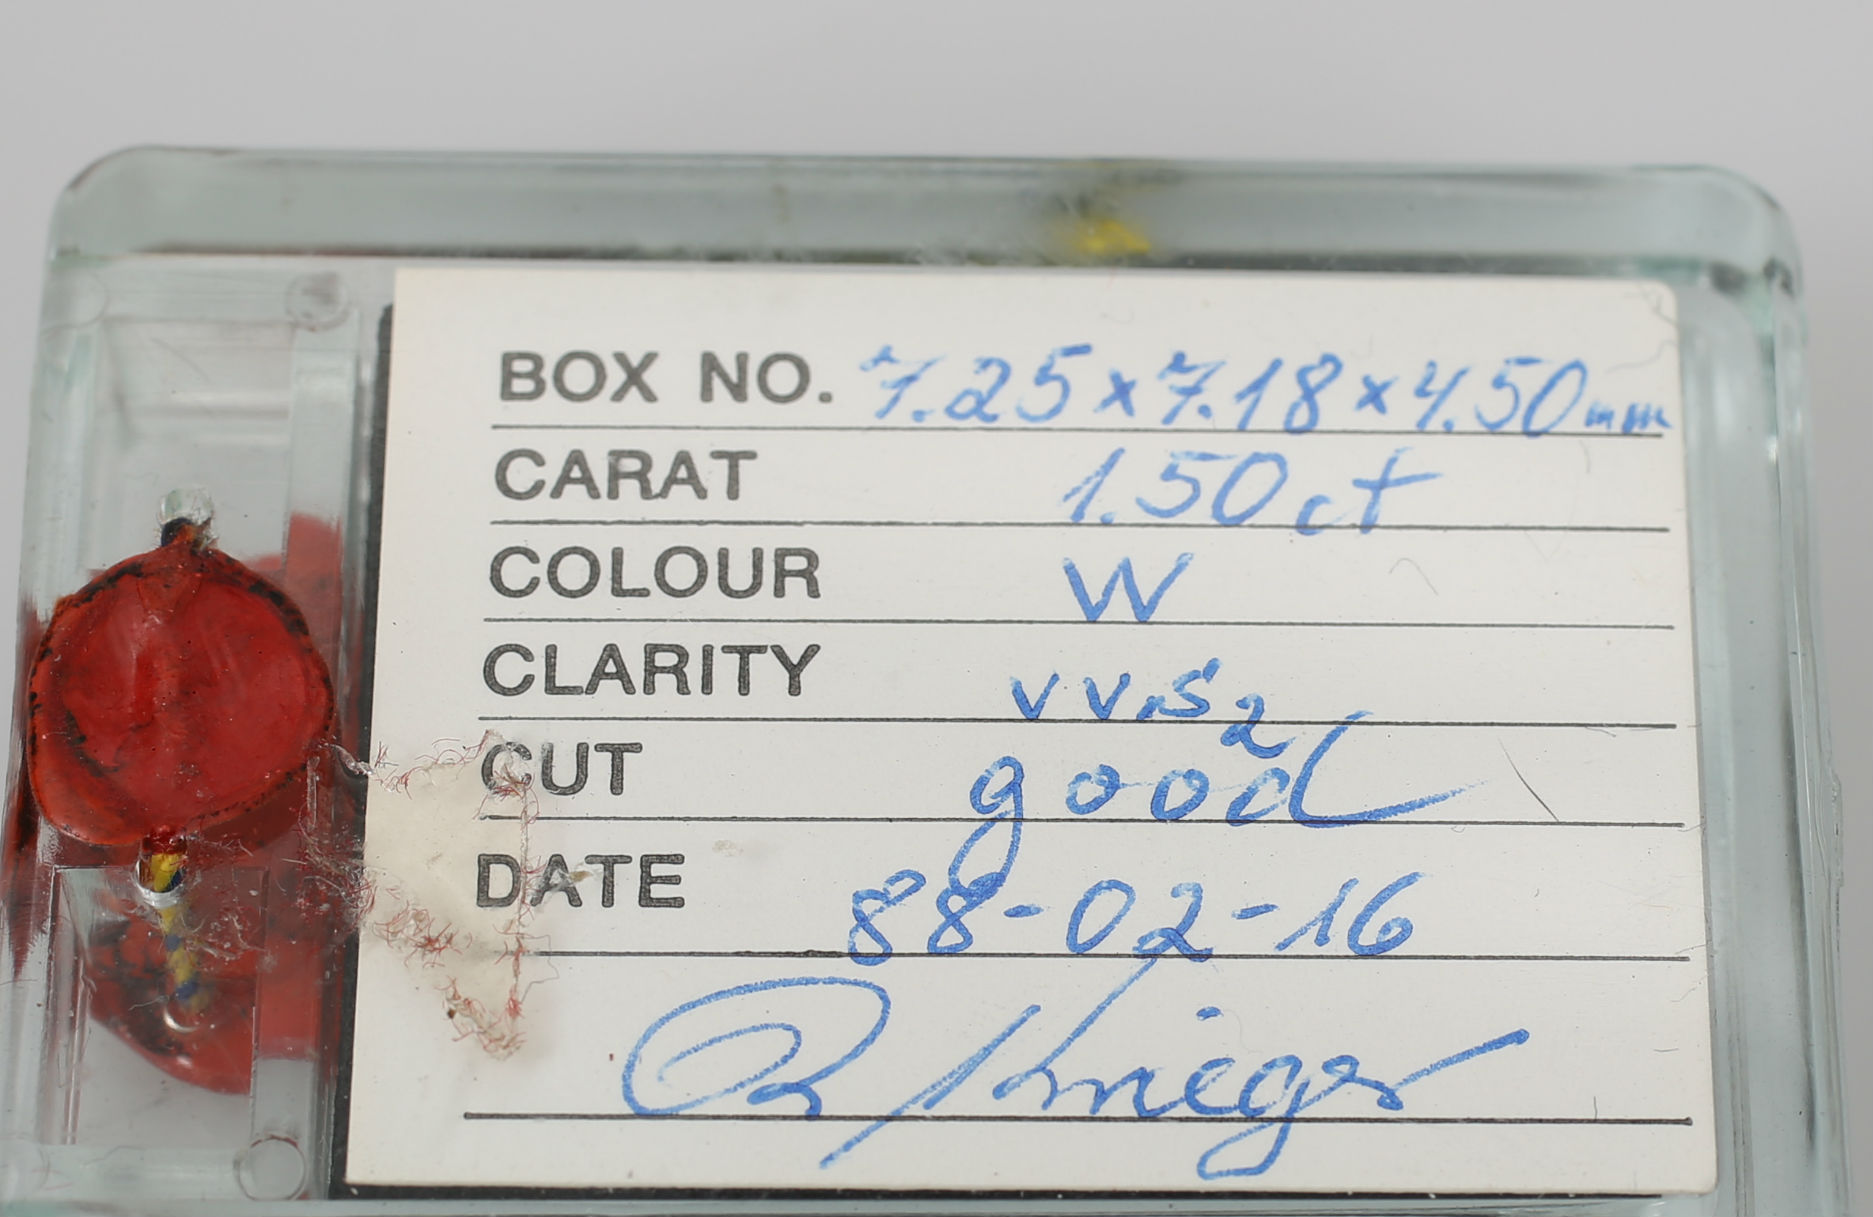 BOX NO. 7.25 x 7.18 x 4.50 mm
CARAT 1.50 ct
COLOUR W
CLARITY vvs2
CUT good
DATE 88-02-16
Krieger